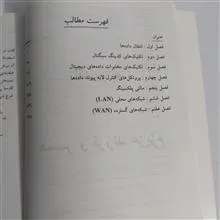 فهرست مطالب
عنوان
فصل اول : انتقال داده‌ها
فصل دوم : تکنیک‌های کدینگ سیگنال
فصل سوم : تکنیک‌های مخابرات داده‌های دیجیتال
فصل چهارم : پروتکل‌های کنترل لایه پیوند داده‌ها
فصل پنجم : مالتی پلکسینگ
فصل ششم : شبکه‌های محلی (LAN)
فصل هفتم : شبکه‌های گسترده (WAN)